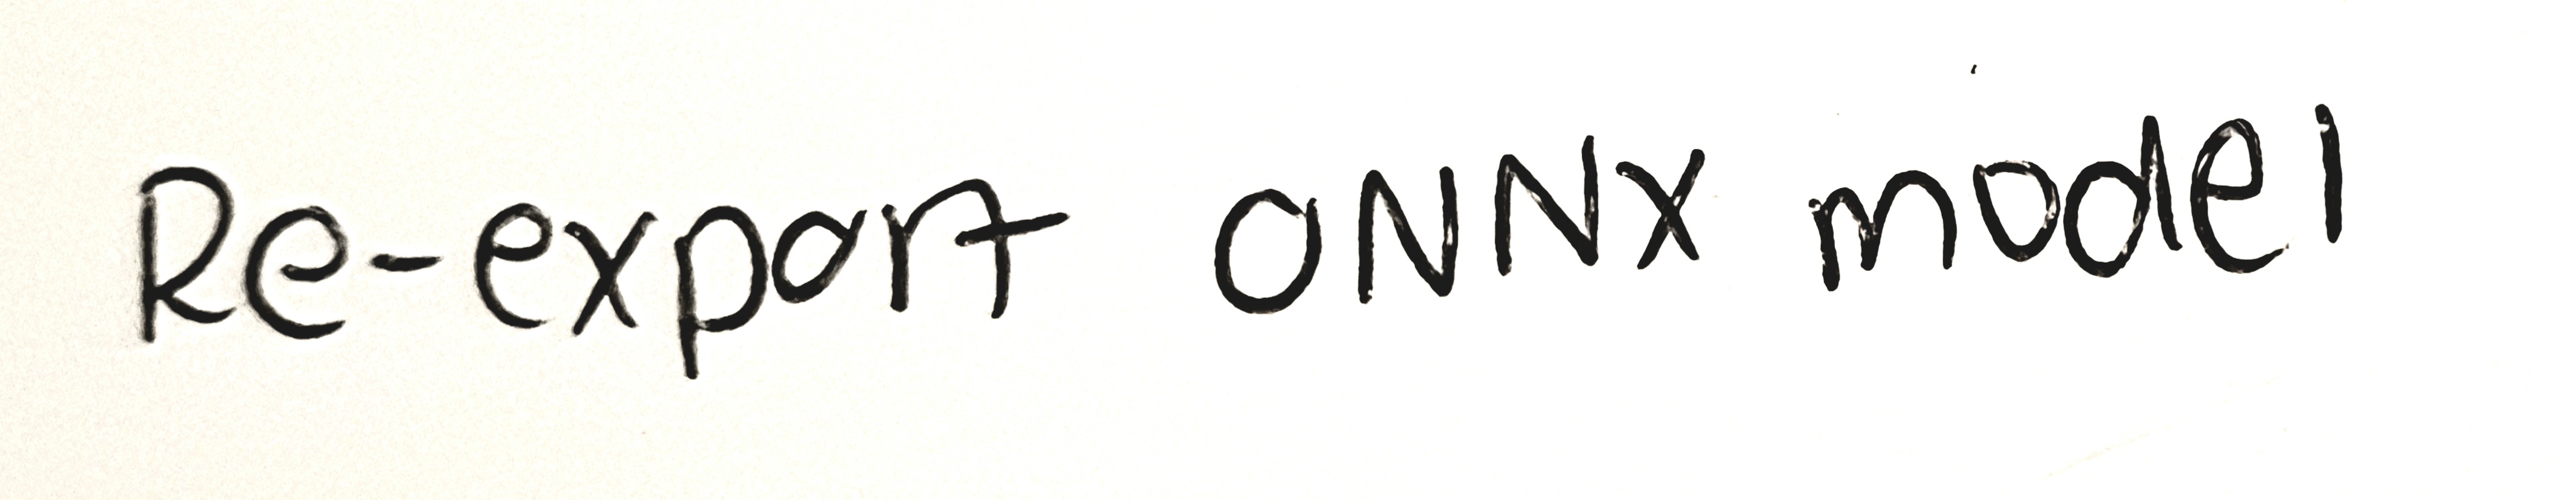 Re-export ONNX model